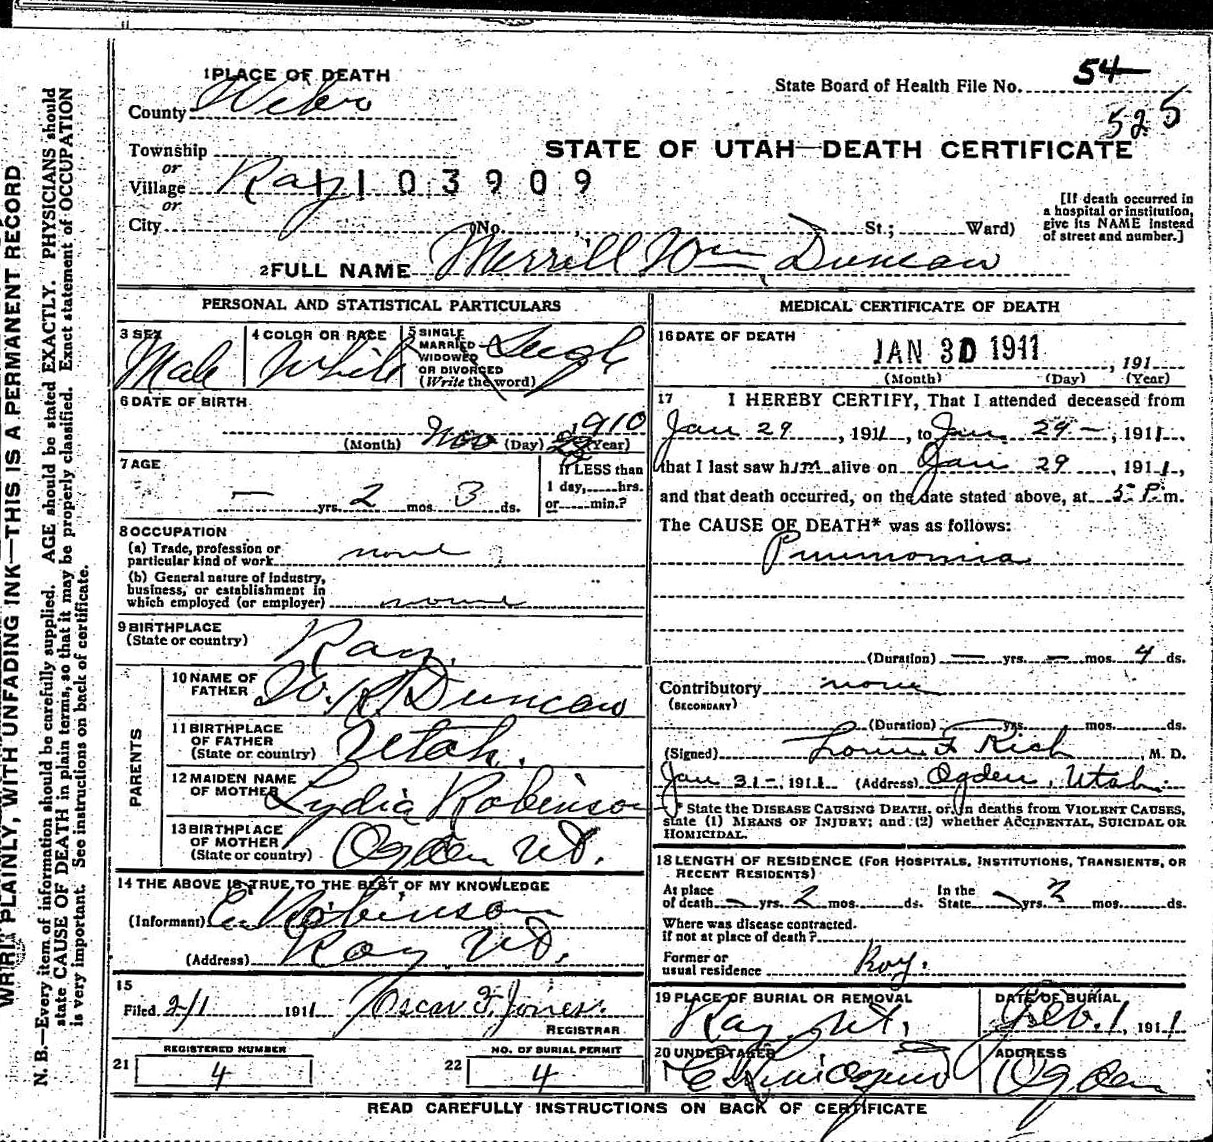 1 PLACE OF DEATH
County Weber
State Board of Health File No. 54
525
Township
or
Village Roy 1103909
or
City
STATE OF UTAH—DEATH CERTIFICATE
(No. , St.; Ward)
[If death occurred in
a hospital or institution,
give its NAME instead
of street and number.]
2 FULL NAME Merrill Wm Duncan
PERSONAL AND STATISTICAL PARTICULARS
3 SEX
Male
4 COLOR OR RACE
White
5 SINGLE
MARRIED
WIDOWED
OR DIVORCED
(Write the word)
6 DATE OF BIRTH
Nov 1910
(Month) (Day) (Year)
7 AGE
— yrs. 2 mos. 3 ds.
If LESS than
1 day, hrs.
or min.?
8 OCCUPATION
(a) Trade, profession or
particular kind of work none
(b) General nature of industry,
business, or establishment in
which employed (or employer) none
9 BIRTHPLACE
(State or country) Roy
PARENTS
10 NAME OF
FATHER W. R. Duncan
11 BIRTHPLACE
OF FATHER
(State or country) Utah.
12 MAIDEN NAME
OF MOTHER Lydia Robinson
13 BIRTHPLACE
OF MOTHER
(State or country) Ogden Ut.
14 THE ABOVE IS TRUE TO THE BEST OF MY KNOWLEDGE
(Informant) Robinson
(Address) Roy Ut.
15
Filed 2/1 1911 Oscar F. Jones.
REGISTRAR
REGISTERED NUMBER
21 4
NO. OF BURIAL PERMIT
22 4
MEDICAL CERTIFICATE OF DEATH
16 DATE OF DEATH
JAN 30 1911 , 191
(Month) (Day) (Year)
17 I HEREBY CERTIFY, That I attended deceased from
Jan 29 , 1911, to Jan. 29 — , 1911,
that I last saw him alive on Jan 29 , 1911,
and that death occurred, on the date stated above, at 5 P. m.
The CAUSE OF DEATH* was as follows:
Pneumonia
(Duration) — yrs. — mos. 4 ds.
Contributory none
(SECONDARY)
(Duration) yrs. mos. ds.
(Signed) F Rich , M. D.
Jan 31 - , 1911 (Address) Ogden, Utah.
* State the DISEASE CAUSING DEATH, or, in deaths from VIOLENT CAUSES,
state (1) MEANS OF INJURY; and (2) whether ACCIDENTAL, SUICIDAL OR
HOMICIDAL.
18 LENGTH OF RESIDENCE (FOR HOSPITALS, INSTITUTIONS, TRANSIENTS, OR
RECENT RESIDENTS)
At place
of death — yrs. 2 mos. ds.
In the
State — yrs. 2 mos. ds.
Where was disease contracted.
if not at place of death?
Former or
usual residence Roy.
19 PLACE OF BURIAL OR REMOVAL
Roy, Ut.
DATE OF BURIAL
Feb. 1, 1911
20 UNDERTAKER
ADDRESS
Ogden
READ CAREFULLY INSTRUCTIONS ON BACK OF CERTIFICATE
WRITE PLAINLY, WITH UNFADING INK—THIS IS A PERMANENT RECORD
N. B.—Every item of information should be carefully supplied. AGE should be stated EXACTLY. PHYSICIANS should
state CAUSE OF DEATH in plain terms, so that it may be properly classified. Exact statement of OCCUPATION
is very important. See instructions on back of certificate.